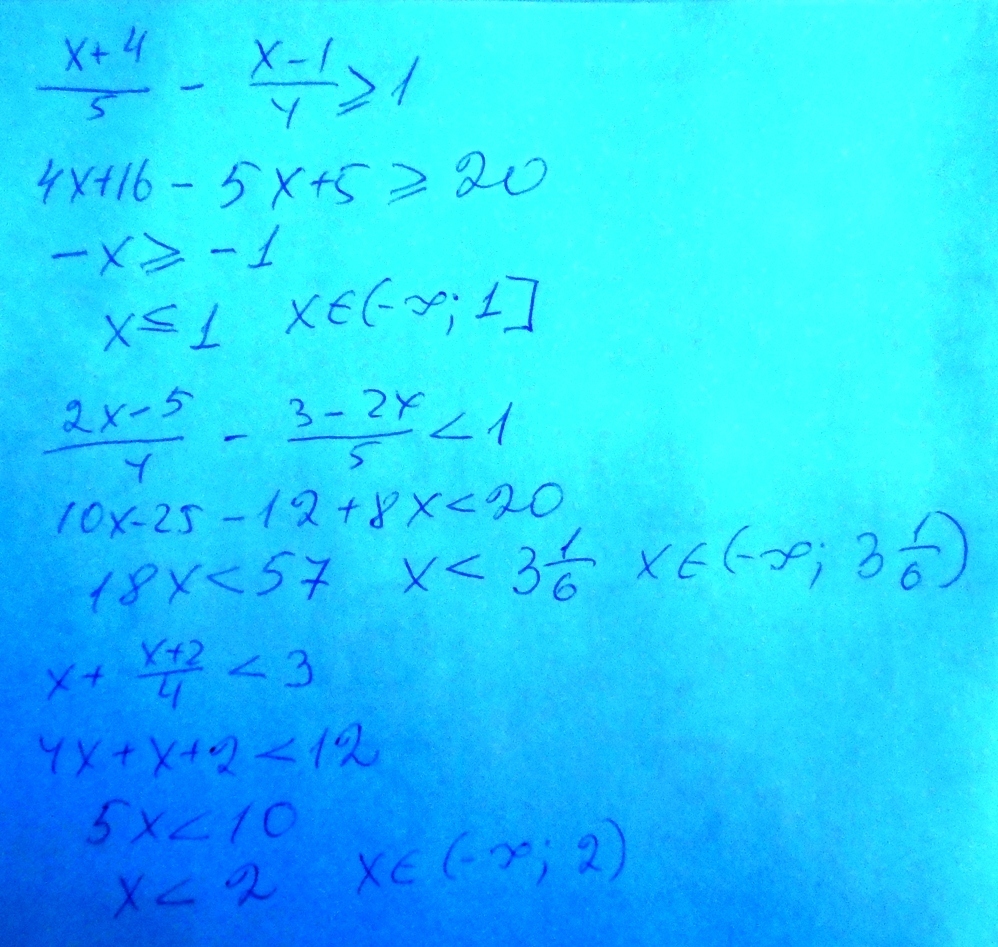 (x+4)/5 - (x-1)/4 ⩾ 1
4x+16 - 5x+5 ⩾ 20
-x ⩾ -1
x ≤ 1 x∈(-∞; 1]
(2x-5)/4 - (3-2x)/5 < 1
10x-25 -12+8x<20
18x<57 x< 3 1/6 x∈(-∞; 3 1/6)
x+ (x+2)/4 < 3
4x+x+2<12
5x<10
x< 2 x∈(-∞; 2)